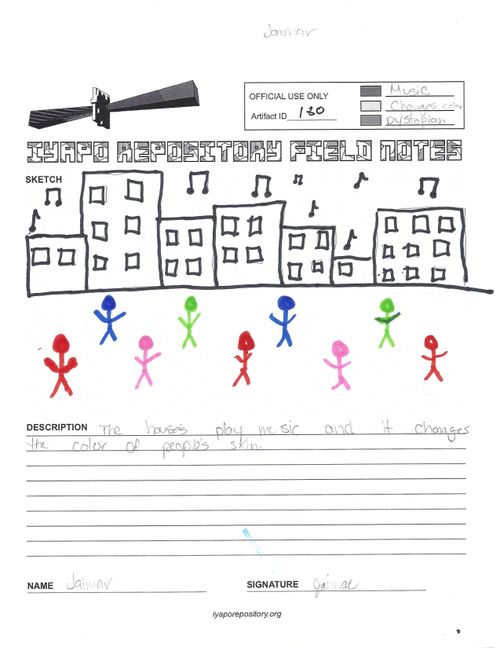 Jaimar
OFFICIAL USE ONLY
Artifact ID 120
Music
Changes color
Dystopian
IYAPO REPOSITORY FIELD NOTES
SKETCH
DESCRIPTION The houses play music and it changes
the color of people's skin.
NAME Jaimar
SIGNATURE
iyaporepository.org